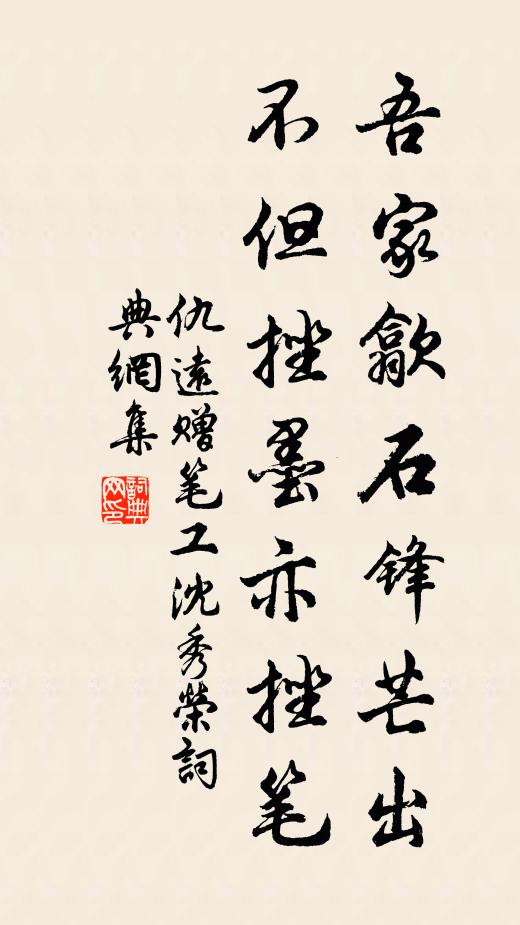 吾家歙石锋芒出
不但挫墨亦挫笔
仇遠赠笔工沈秀榮詞
典網集
詞典网印